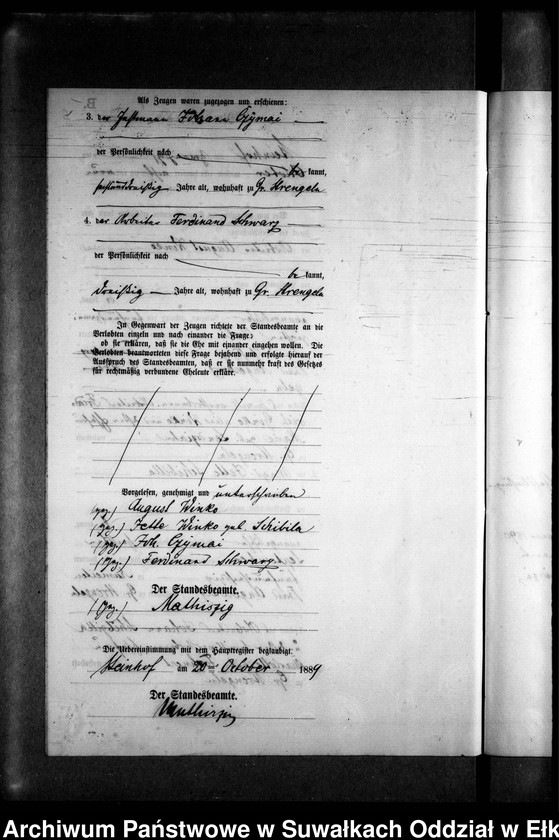 Als Zeugen waren zugezogen und erschienen:
3. der Instmann Johann Czymai
der Persönlichkeit nach
bekannt,
sechsunddreißig Jahre alt, wohnhaft zu Gr. Strengeln
4. der Arbeiter Ferdinand Schwarz
der Persönlichkeit nach
bekannt,
dreißig Jahre alt, wohnhaft zu Gr. Strengeln
In Gegenwart der Zeugen richtete der Standesbeamte an die
Verlobten einzeln und nach einander die Frage:
ob sie erklären, daß sie die Ehe mit einander eingehen wollen. Die
Verlobten beantworteten diese Frage bejahend und erfolgte hierauf der
Ausspruch des Standesbeamten, daß er sie nunmehr kraft des Gesetzes
für rechtmäßig verbundene Eheleute erkläre.
Vorgelesen, genehmigt und unterschrieben
(gez.) August Winko
(gez.) Jette Winko geb. Schibila
(gez.) Joh. Czymai
(gez.) Ferdinand Schwarz.
Der Standesbeamte.
(gez.) Mathiszig
Die Uebereinstimmung mit dem Hauptregister beglaubigt.
Steinhof am 20ten October 1889
Der Standesbeamte.
Mathiszig
Archiwum Państwowe w Suwałkach Oddział w Ełk